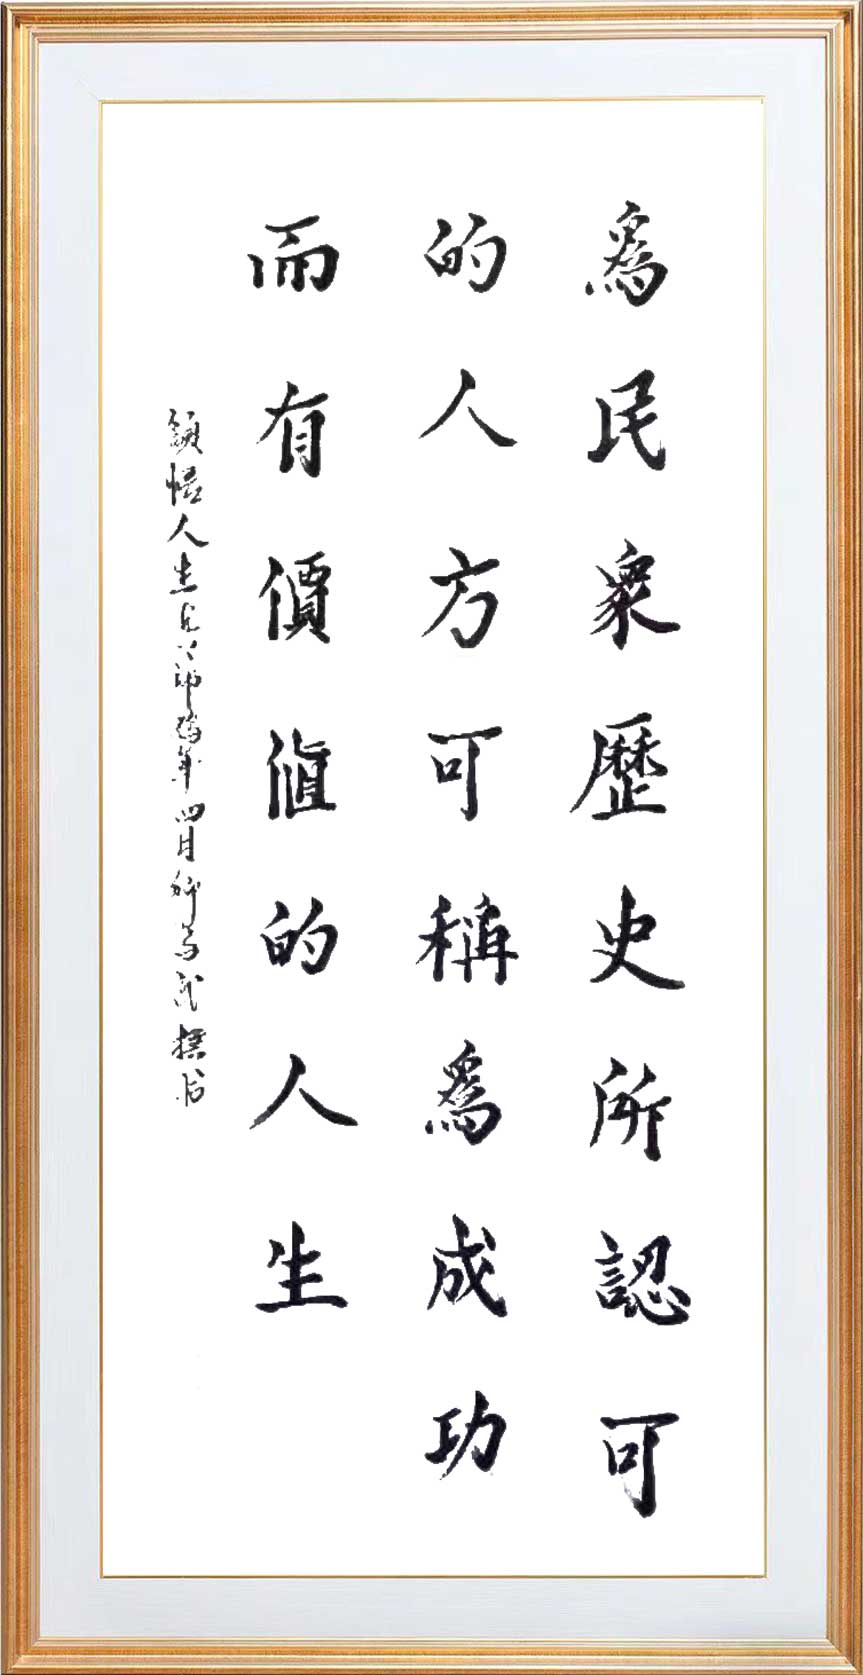 爲民衆歷史所認可
的人方可稱爲成功
而有價值的人生
領悟人生
年四月
撰书